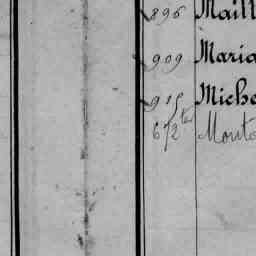 896 Maill
909 Maria
915 Miche
672ter Monta